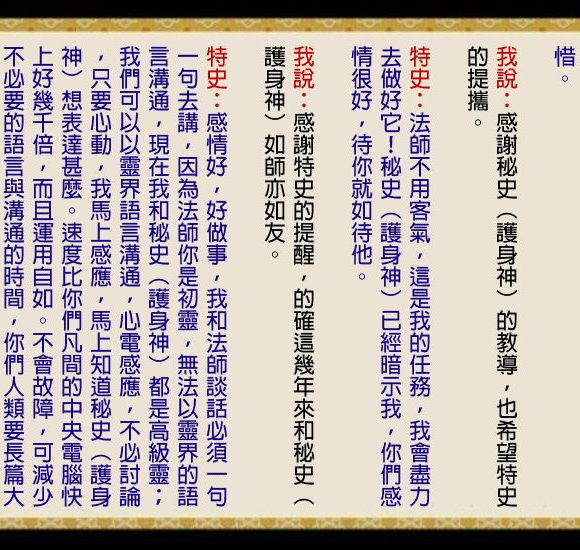 惜。
我說：感謝秘史（護身神）的教導，也希望特史
的提攜。
特史：法師不用客氣，這是我的任務，我會盡力
去做好它！秘史（護身神）已經暗示我，你們感
情很好，待你就如待他。
我說：感謝特史的提醒，的確這幾年來和秘史（
護身神）如師亦如友。
特史：感情好，好做事，我和法師談話必須一句
一句去講，因為法師你是初靈，無法以靈界的語
言溝通，現在我和秘史（護身神）都是高級靈；
我們可以以靈界語言溝通，心電感應，不必討論
，只要心動，我馬上感應，馬上知道秘史（護身
神）想表達甚麼。速度比你們凡間的中央電腦快
上好幾千倍，而且運用自如。不會故障，可減少
不必要的語言與溝通的時間，你們人類要長篇大